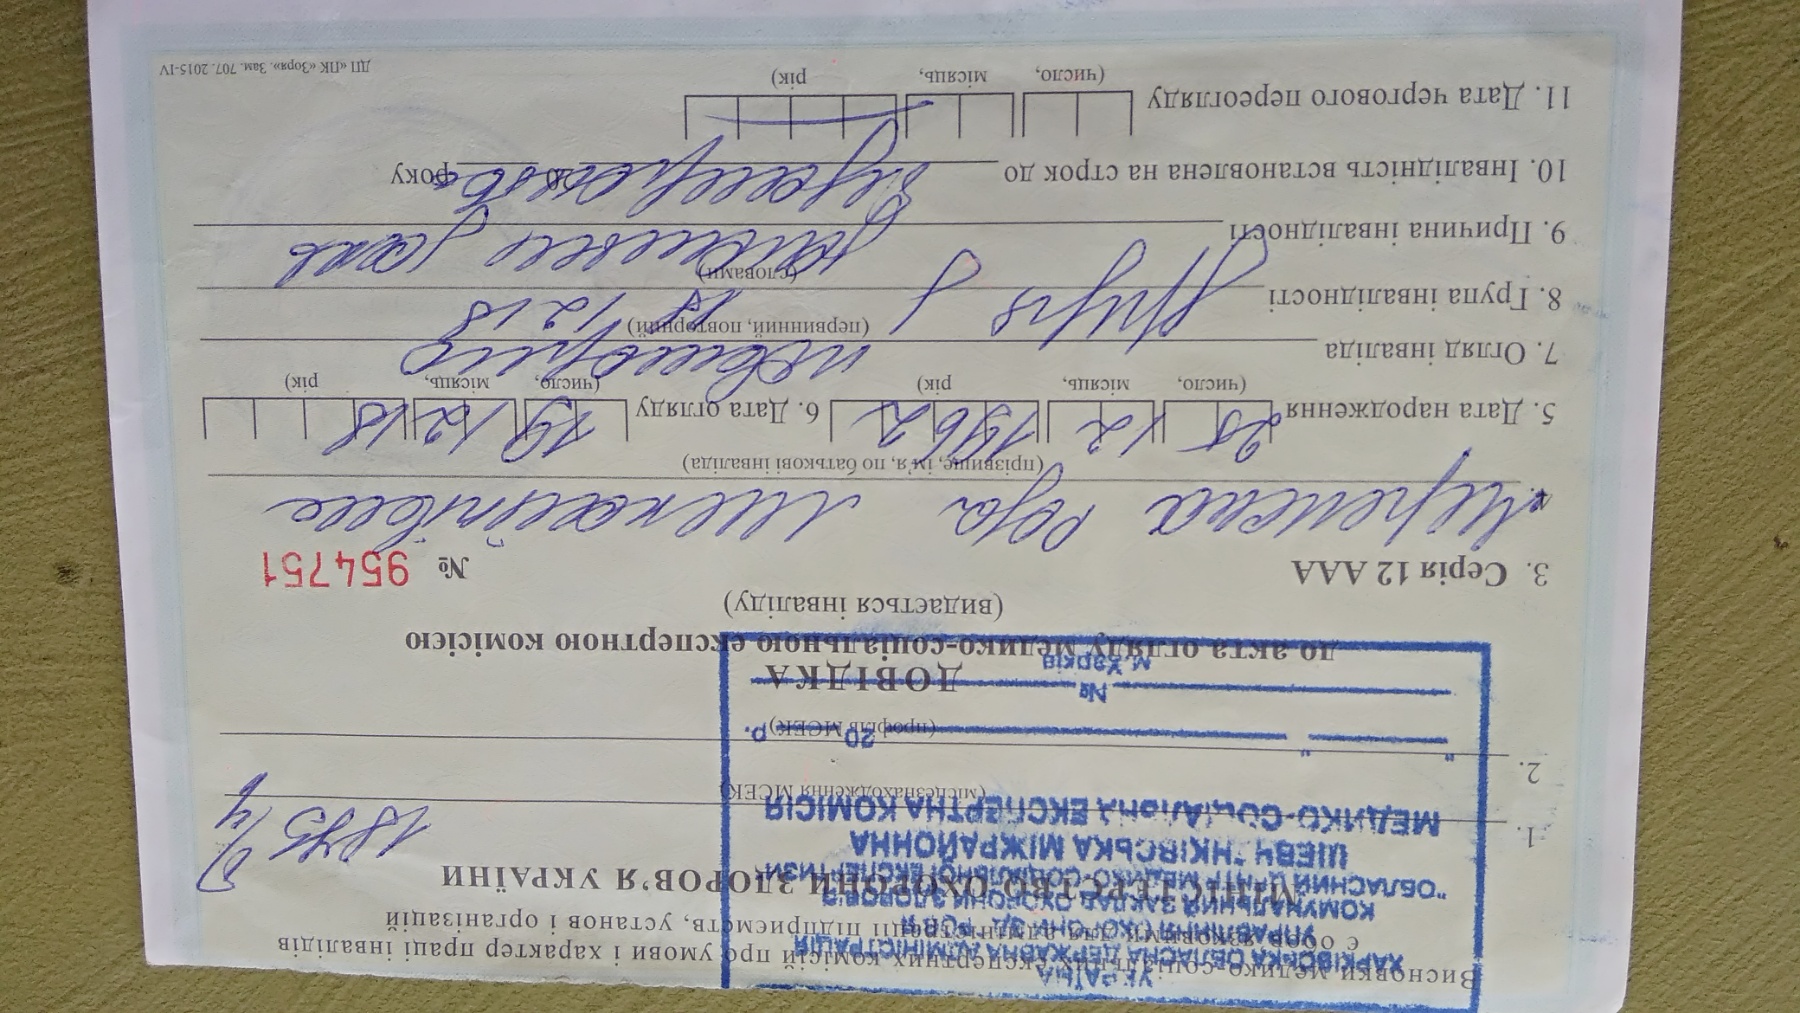 Висновки медико-соціальних експертних комісій про умови і характер праці інвалідів
є обов'язковими для адміністрації підприємств, установ і організацій
МІНІСТЕРСТВО ОХОРОНИ ЗДОРОВ'Я УКРАЇНИ
УКРАЇНА
ХАРКІВСЬКА ОБЛАСНА ДЕРЖАВНА АДМІНІСТРАЦІЯ
УПРАВЛІННЯ ОХОРОНИ ЗДОРОВ'Я
КОМУНАЛЬНИЙ ЗАКЛАД ОХОРОНИ ЗДОРОВ'Я
"ОБЛАСНИЙ ЦЕНТР МЕДИКО-СОЦІАЛЬНОЇ ЕКСПЕРТИЗИ"
ШЕВЧЕНКІВСЬКА МІЖРАЙОННА
МЕДИКО-СОЦІАЛЬНА ЕКСПЕРТНА КОМІСІЯ
" " 20 р.
№
м.Харків
1.
(місцезнаходження МСЕК)
2.
(профіль МСЕК)
ДОВІДКА
до акта огляду медико-соціальною експертною комісією
(видається інваліду)
3. Серія 12 ААА № 954751
(прізвище, ім'я, по батькові інваліда)
5. Дата народження 25 12 1962 6. Дата огляду 19 12 18
(число, місяць, рік) (число, місяць, рік)
7. Огляд інваліда повторно
(первинний, повторний)
8. Група інвалідності
(словами)
9. Причина інвалідності
10. Інвалідність встановлена на строк до 20 року
11. Дата чергового переогляду
(число, місяць, рік)
ДП «ПК «Зоря». Зам. 707. 2015-IV